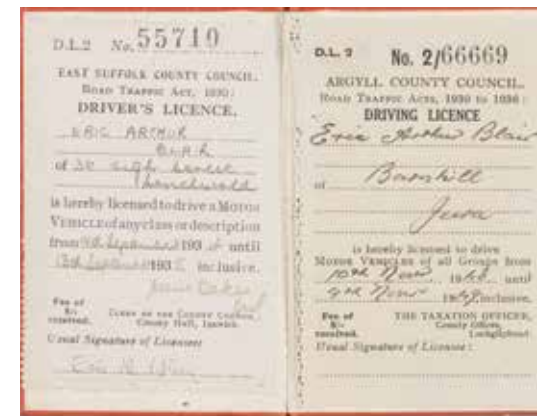 D.L.2 No. 55719
EAST SUFFOLK COUNTY COUNCIL.
ROAD TRAFFIC ACT, 1930.
DRIVER'S LICENCE.
ERIC ARTHUR
BLAIR
of 36 High Street
is hereby licensed to drive a MOTOR
VEHICLE of any class or description
from September 193 until
September 193 inclusive.
Fee of
5/-
received.
CLERK OF THE COUNTY COUNCIL,
County Hall, Ipswich.
Usual Signature of Licensee:
Eric A Blair
D.L. 2 No. 2/66669
ARGYLL COUNTY COUNCIL.
ROAD TRAFFIC ACTS, 1930 to 1936:
DRIVING LICENCE
Eric Arthur Blair
of Barnhill
Jura
is hereby licensed to drive
MOTOR VEHICLES of all Groups from
10th Novr 1948 until
9th Novr 1949 inclusive.
Fee of
5/-
received.
THE TAXATION OFFICER,
County Offices,
Lochgilphead.
Usual Signature of Licensee: